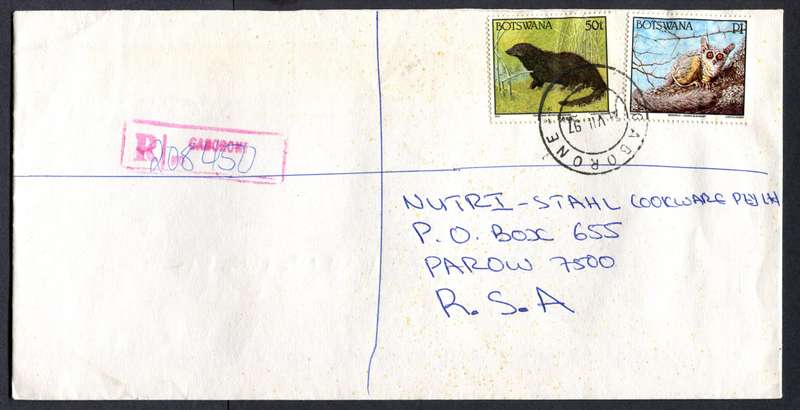 BOTSWANA 50t
BOTSWANA P1
GABORONE
VII.97
R GABORONE
208450
NUTRI-STAHL COOKWARE PTY LTD
P.O. BOX 655
PAROW 7500
R.S.A